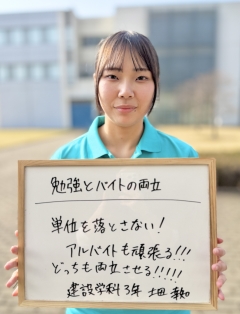 勉強とバイトの両立
単位を落とさない!
アルバイトも頑張る!!!
どっちも両立させる!!!!!
建設学科3年